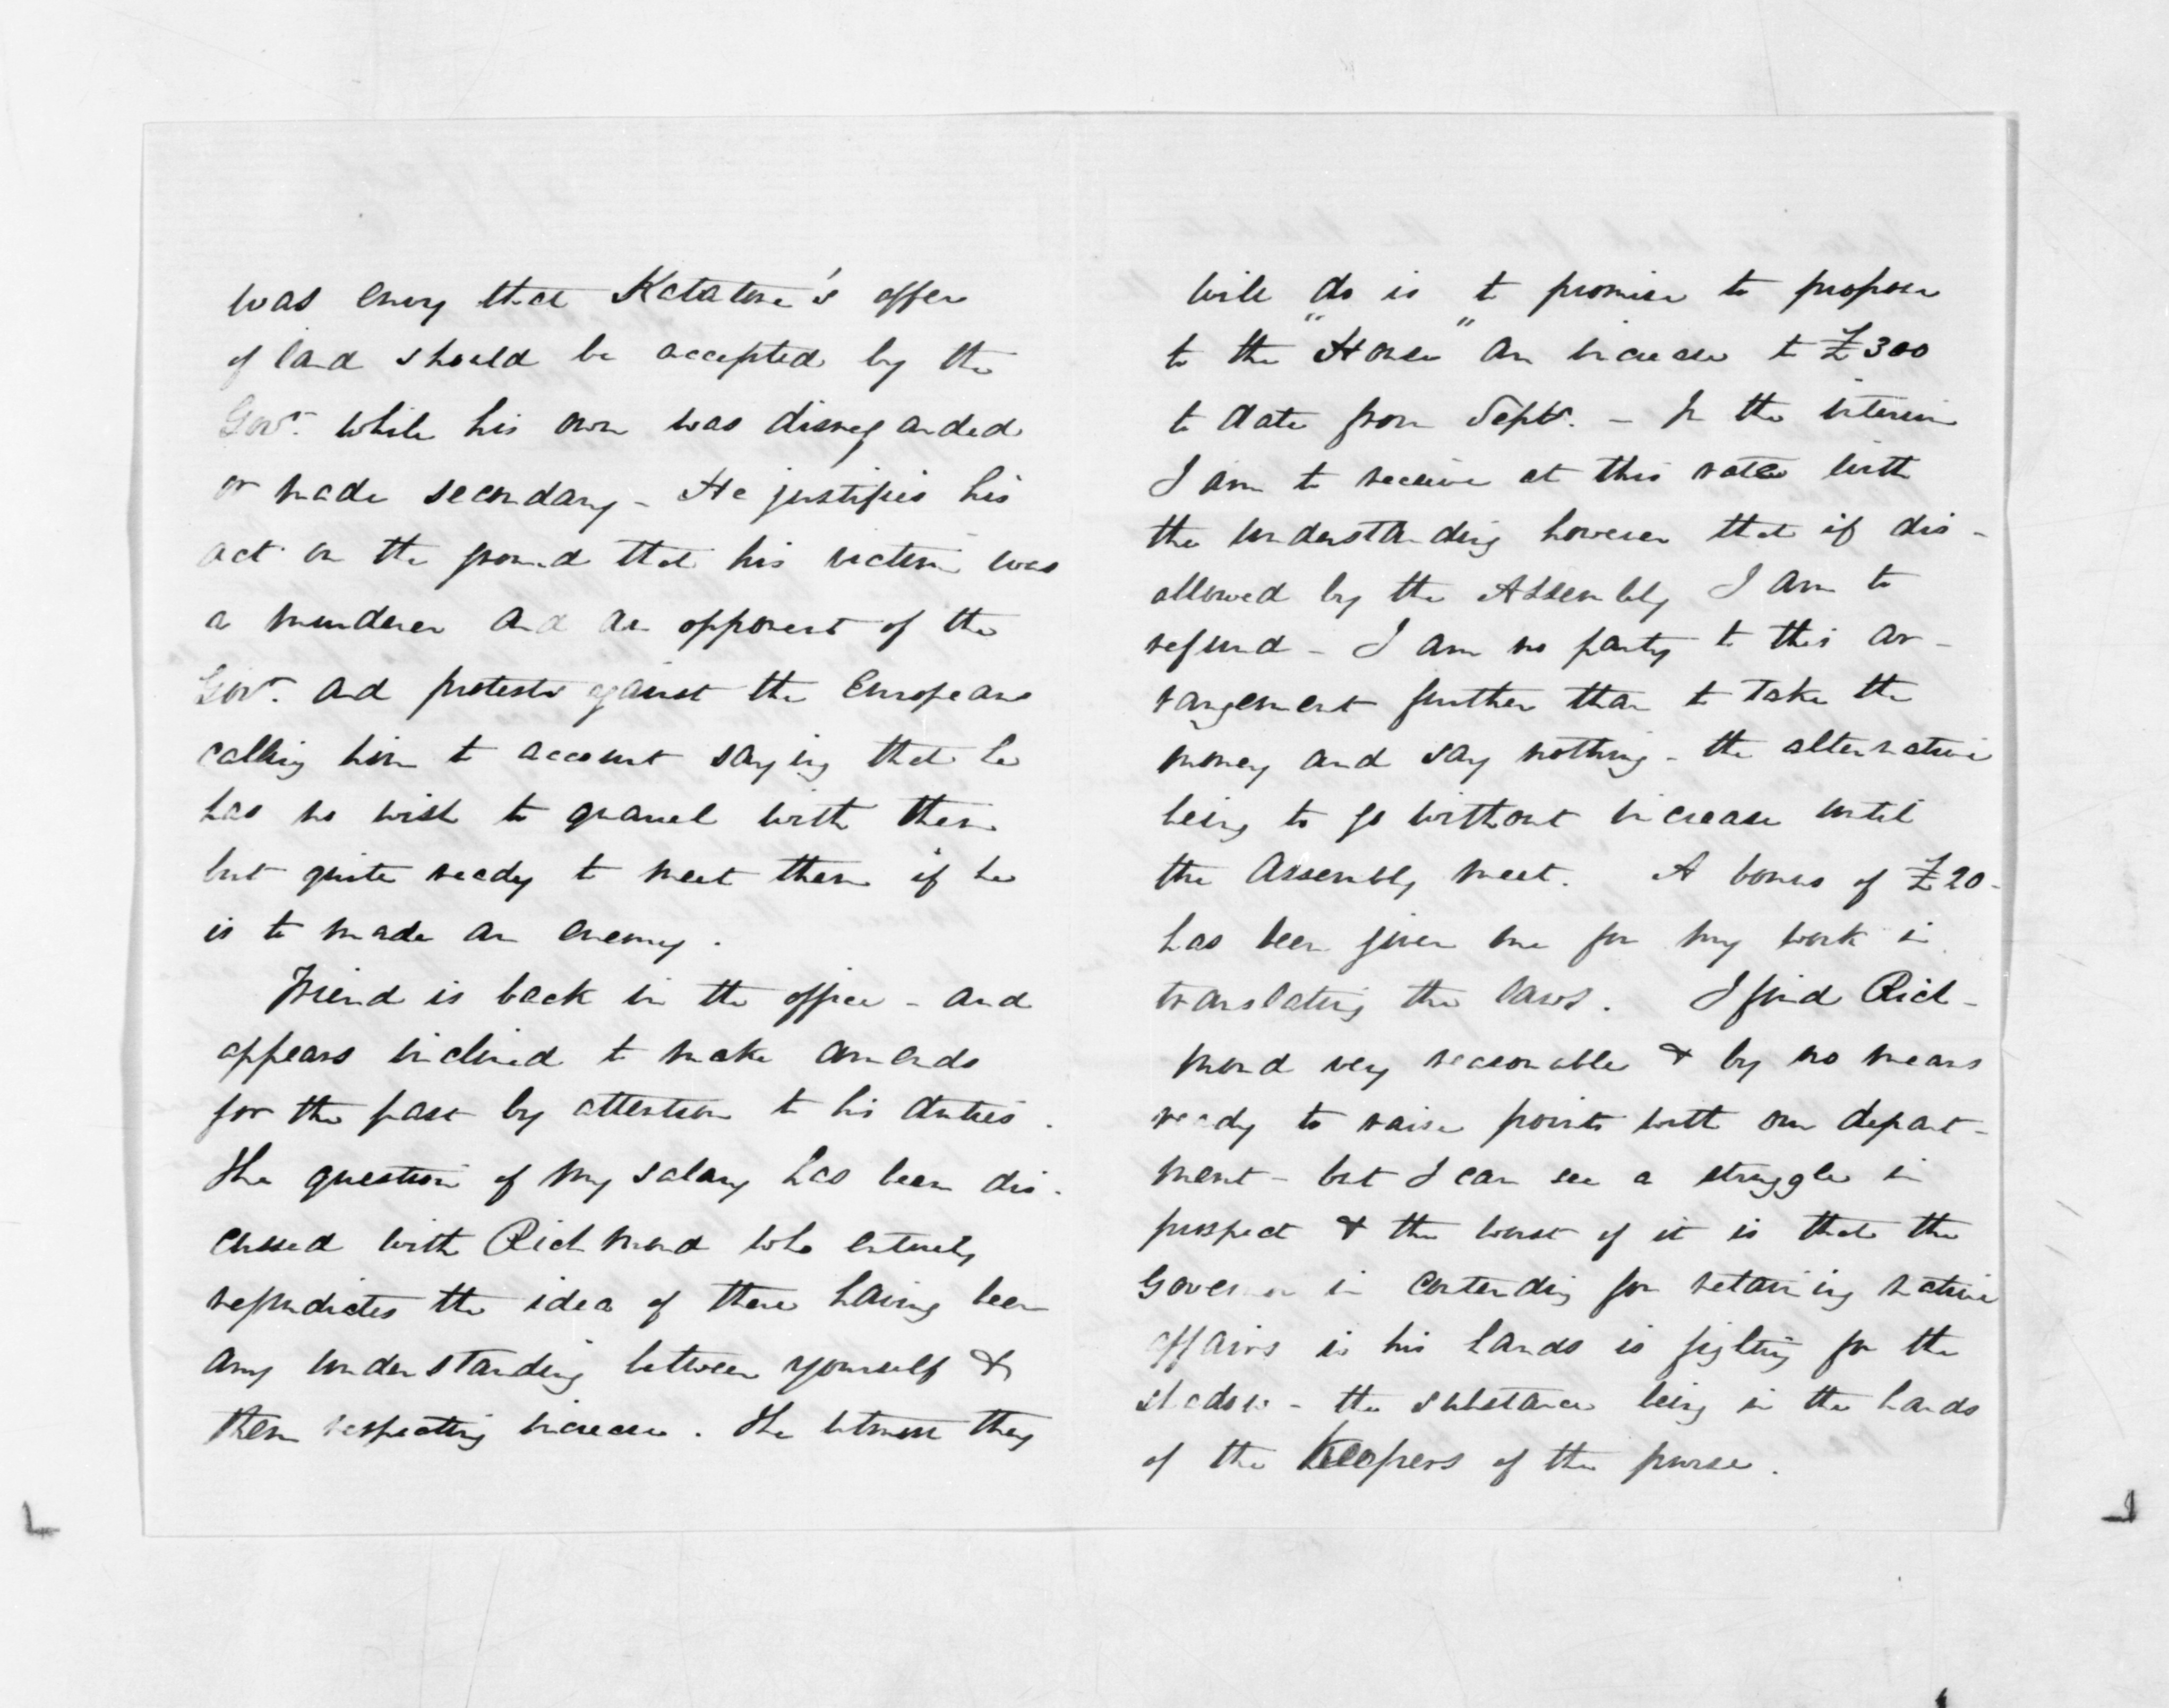 was envy that Katatore's offer
of land should be accepted by the
Govt. while his own was disregarded
or made secondary - He justifies his
act on the ground that his victim was
a murderer and an opponent of the
Govt. and protests against the Europeans
calling him to account saying that he
has no wish to quarrel with them
but quite ready to meet them if he
is to made an enemy.
Friend is back in the office - and
appears inclined to make amends
for the past by attention to his duties.
The question of my salary has been dis-
cussed with Richmond who entirely
repudiates the idea of there having been
any understanding between yourself &
them respecting increase. The utmost they
will do is to promise to propose
to the "House" an increase to £300
to date from Septr. - In the interim
I am to receive at this rate with
the understanding however that if dis-
allowed by the Assembly I am to
refund - I am no party to this ar-
rangement further than to take the
money and say nothing - the alternative
being to go without increase until
the Assembly meet. A bonus of £20-
has been given me for my work in
translating the laws. I find Rich-
mond very reasonable & by no means
ready to raise points with our depart-
ment - but I can see a struggle in
prospect & the worst of it is that the
Governor in contending for retaining native
affairs in his hands is fighting for the
shadow - the substance being in the hands
of the Keepers of the purse.